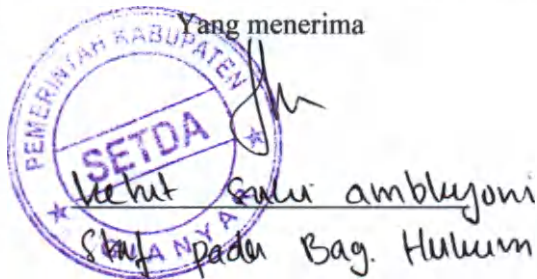 Yang menerima
PEMERINTAH KABUPATEN
SETDA
Ketut
Staf pada Bag. Hukum